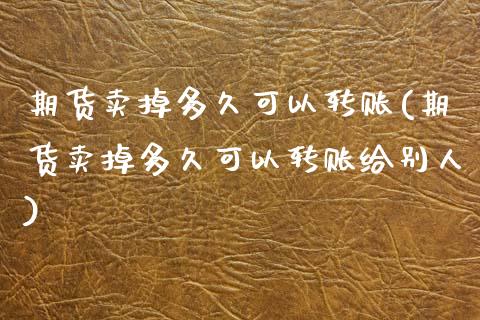 期货卖掉多久可以转账(期
货卖掉多久可以转账给别人
)